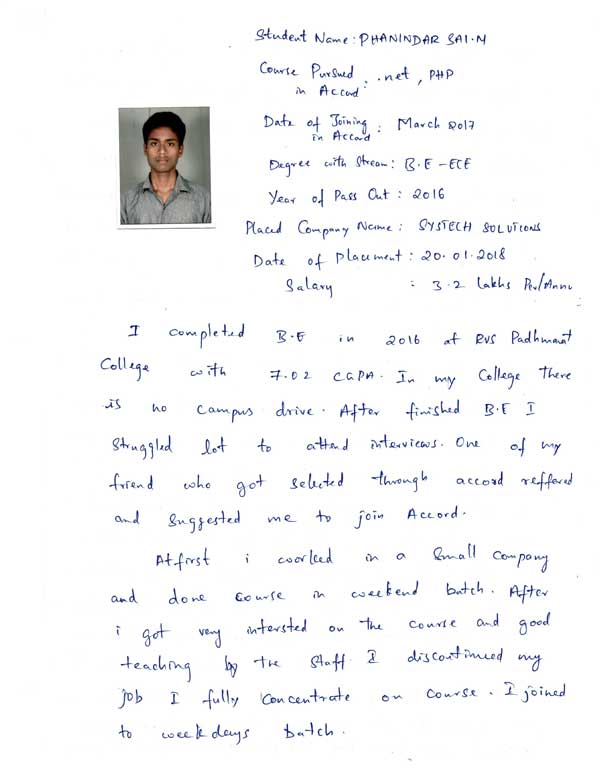 Student Name: PHANINDAR SAI.M
Course Pursued : .net, PHP
in Accord
Date of Joining : March 2017
in Accord
Degree with Stream: B.E - ECE
Year of Pass Out : 2016
Placed Company Name: SYSTECH SOLUTIONS
Date of Placement : 20.01.2018
Salary : 3.2 Lakhs Per/Annu
I completed B.E in 2016 at RVS
College with 7.02 CGPA. In my College there
is no campus drive. After finished B.E I
struggled lot to attend interviews. One of my
friend who got selected through accord reffered
and suggested me to join Accord.
At first i worked in a small company
and done course in weekend batch. After
i got very intersted on the course and good
teaching by the staff I discontinued my
job I fully concentrate on course. I joined
to weekdays batch.